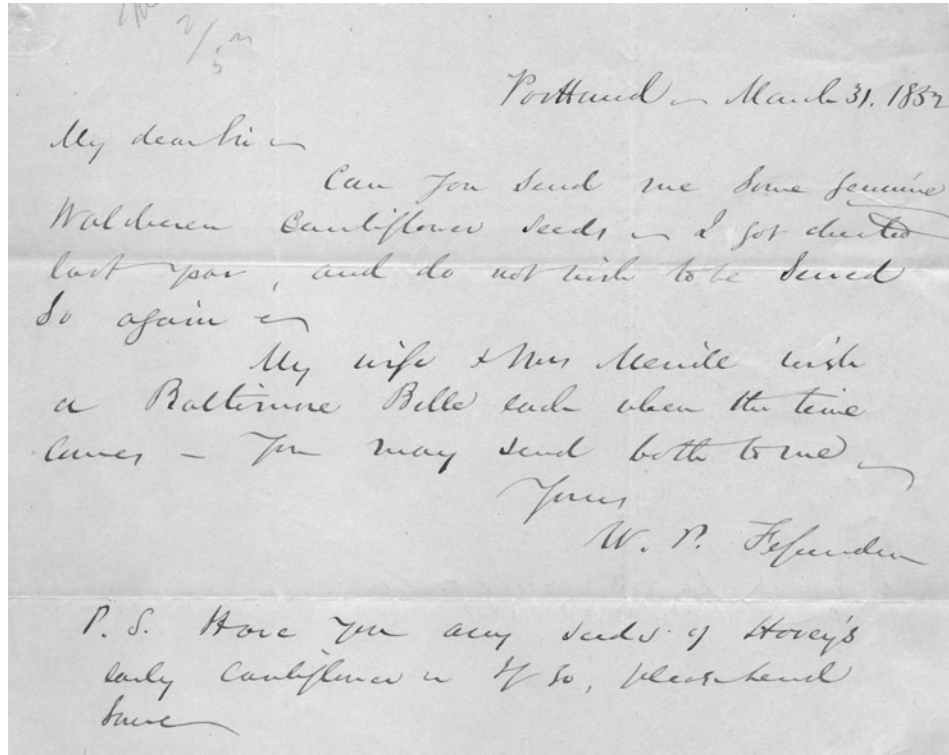 Portland – March 31. 1852
My dear Sir –
Can you send me some genuine
Walcheren Cauliflower seeds – I got cheated
last year, and do not wish to be served
so again –
My wife & Mrs Merrill wish
a Baltimore Belle each when the time
comes – You may send both to me –
Yours
W. P. Fessenden
P. S. Have you any seeds of Hovey's
early Cauliflower – If so, please send
some –